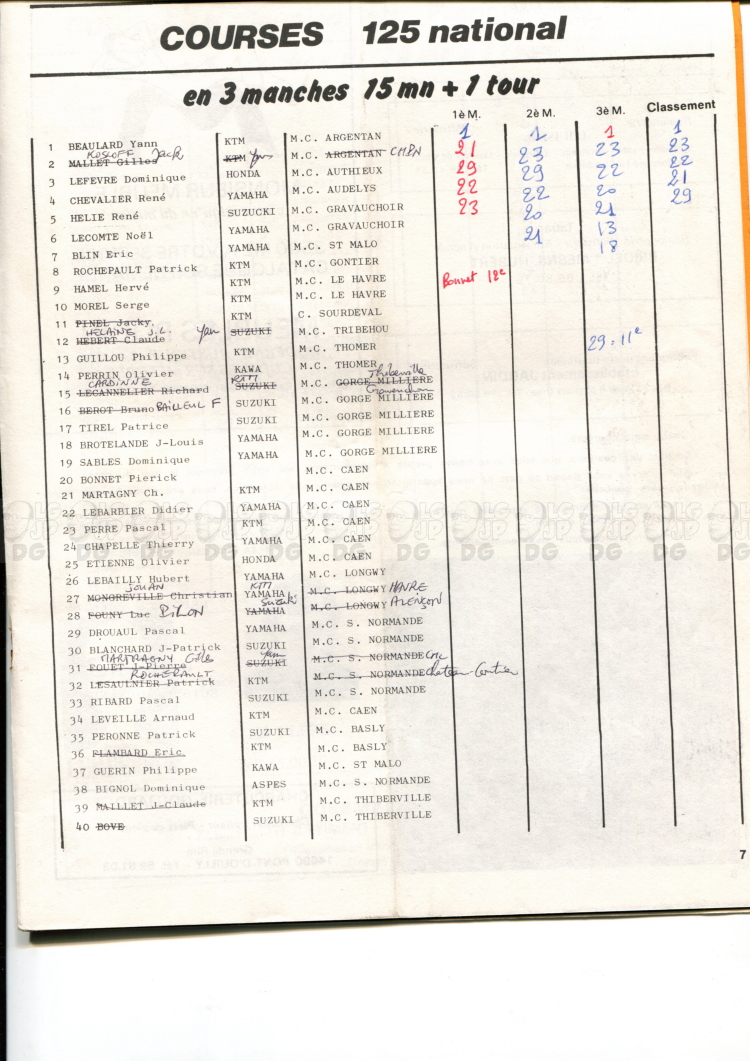 COURSES 125 national
en 3 manches 15 mn + 1 tour
1è M. 2è M. 3è M. Classement
1 BEAULARD Yann KTM M.C. ARGENTAN 1 1 1 1
KOSLOFF Jack Yam CMPN 21 23 23 23
2 MALLET Gilles KTM M.C. ARGENTAN
3 LEFEVRE Dominique HONDA M.C. AUTHIEUX 29 29 22 22
4 CHEVALIER René YAMAHA M.C. AUDELYS 22 22 20 21
5 HELIE René SUZUCKI M.C. GRAVAUCHOIR 23 20 21 29
6 LECOMTE Noël YAMAHA M.C. GRAVAUCHOIR 21 13
7 BLIN Eric YAMAHA M.C. ST MALO 18
8 ROCHEPAULT Patrick KTM M.C. GONTIER
9 HAMEL Hervé KTM M.C. LE HAVRE Bonnet 12e
10 MOREL Serge KTM M.C. LE HAVRE
11 PINEL Jacky. KTM C. SOURDEVAL
HELAINE J.L. Yam
12 HEBERT Claude SUZUKI M.C. TRIBEHOU
13 GUILLOU Philippe KTM M.C. THOMER 29 : 11e
14 PERRIN Olivier KAWA M.C. THOMER
CARDINNE KTM Thiberville
15 LECANNELIER Richard SUZUKI M.C. GORGE MILLIERE
16 BEROT Bruno BAILLEUL F SUZUKI M.C. GORGE MILLIERE
17 TIREL Patrice SUZUKI M.C. GORGE MILLIERE
18 BROTELANDE J-Louis YAMAHA M.C. GORGE MILLIERE
19 SABLES Dominique YAMAHA M.C. GORGE MILLIERE
20 BONNET Pierick M.C. CAEN
21 MARTAGNY Ch. KTM M.C. CAEN
22 LEBARBIER Didier YAMAHA M.C. CAEN
23 PERRE Pascal KTM M.C. CAEN
24 CHAPELLE Thierry YAMAHA M.C. CAEN
25 ETIENNE Olivier HONDA M.C. CAEN
26 LEBAILLY Hubert YAMAHA M.C. LONGWY
JOUAN KTM
27 MONGREVILLE Christian YAMAHA M.C. LONGWY
28 FOUNY Luc Suzuki YAMAHA M.C. LONGWY ALENÇON
29 DROUAUL Pascal YAMAHA M.C. S. NORMANDE
30 BLANCHARD J-Patrick SUZUKI M.C. S. NORMANDE
MARTRAGNY Gilles Yam
31 FOUET J-Pierre SUZUKI M.C. S. NORMANDE
ROCHERAULT
32 LESAULNIER Patrick KTM M.C. S. NORMANDE Chateau-Gontier
33 RIBARD Pascal SUZUKI M.C. S. NORMANDE
34 LEVEILLE Arnaud KTM M.C. CAEN
35 PERONNE Patrick SUZUKI M.C. BASLY
36 FLAMBARD Eric KTM M.C. BASLY
37 GUERIN Philippe KAWA M.C. ST MALO
38 BIGNOL Dominique ASPES M.C. S. NORMANDE
39 MAILLET J-Claude KTM M.C. THIBERVILLE
40 BOVE SUZUKI M.C. THIBERVILLE
7